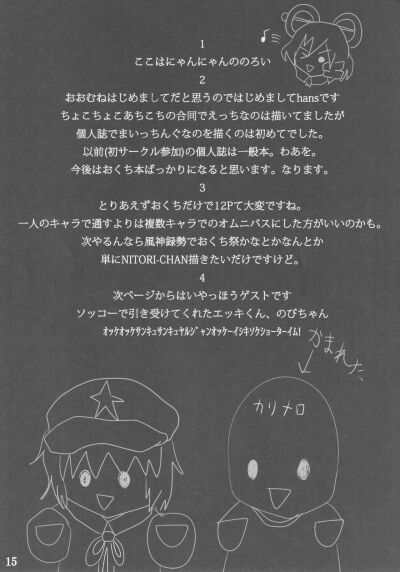 1
ここはにゃんにゃんののろい
2
おおむねはじめましてだと思うのではじめましてhansです
ちょこちょこあちこちの合同でえっちなのは描いてましたが
個人誌でまいっちんぐなのを描くのは初めてでした。
以前(初サークル参加)の個人誌は一般本。わあを。
今後はおくち本ばっかりになると思います。なります。
3
とりあえずおくちだけで12Pて大変ですね。
一人のキャラで通すよりは複数キャラでのオムニバスにした方がいいのかも。
次やるんなら風神録勢でおくち祭かなとかなんとか
単にNITORI-CHAN描きたいだけですけど。
4
次ページからはいやっほうゲストです
ソッコーで引き受けてくれたエッキくん、のびちゃん
ｵｯｹｵｯｹｻﾝｷｭｻﾝｷｭﾔﾙｼﾞｬﾝｵｯｹｰｲｼｷｿｸｼｮｰﾀｲﾑ!
かまれた、
カリメロ
15